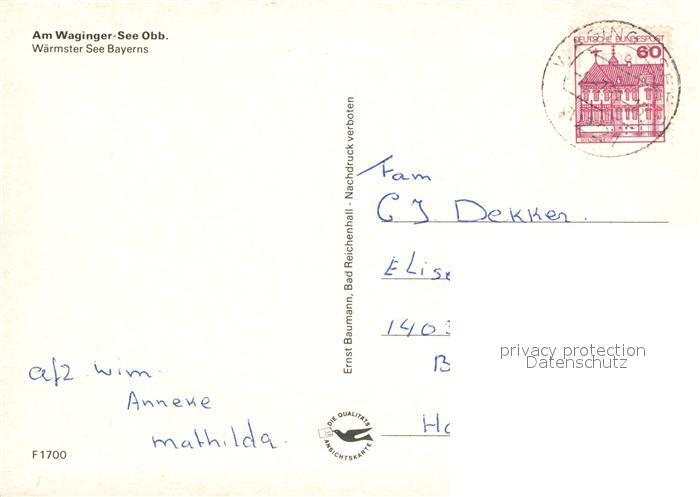 Am Waginger-See Obb.
Wärmster See Bayerns
DEUTSCHE BUNDESPOST
60
Ernst Baumann, Bad Reichenhall - Nachdruck verboten
Fam.
C J. Dekker.
Elise
1403
B
Ho
privacy protection
Datenschutz
afz. Wim.
Anneke
mathilda.
DIE QUALITÄTS
ANSICHTSKARTE
F1700